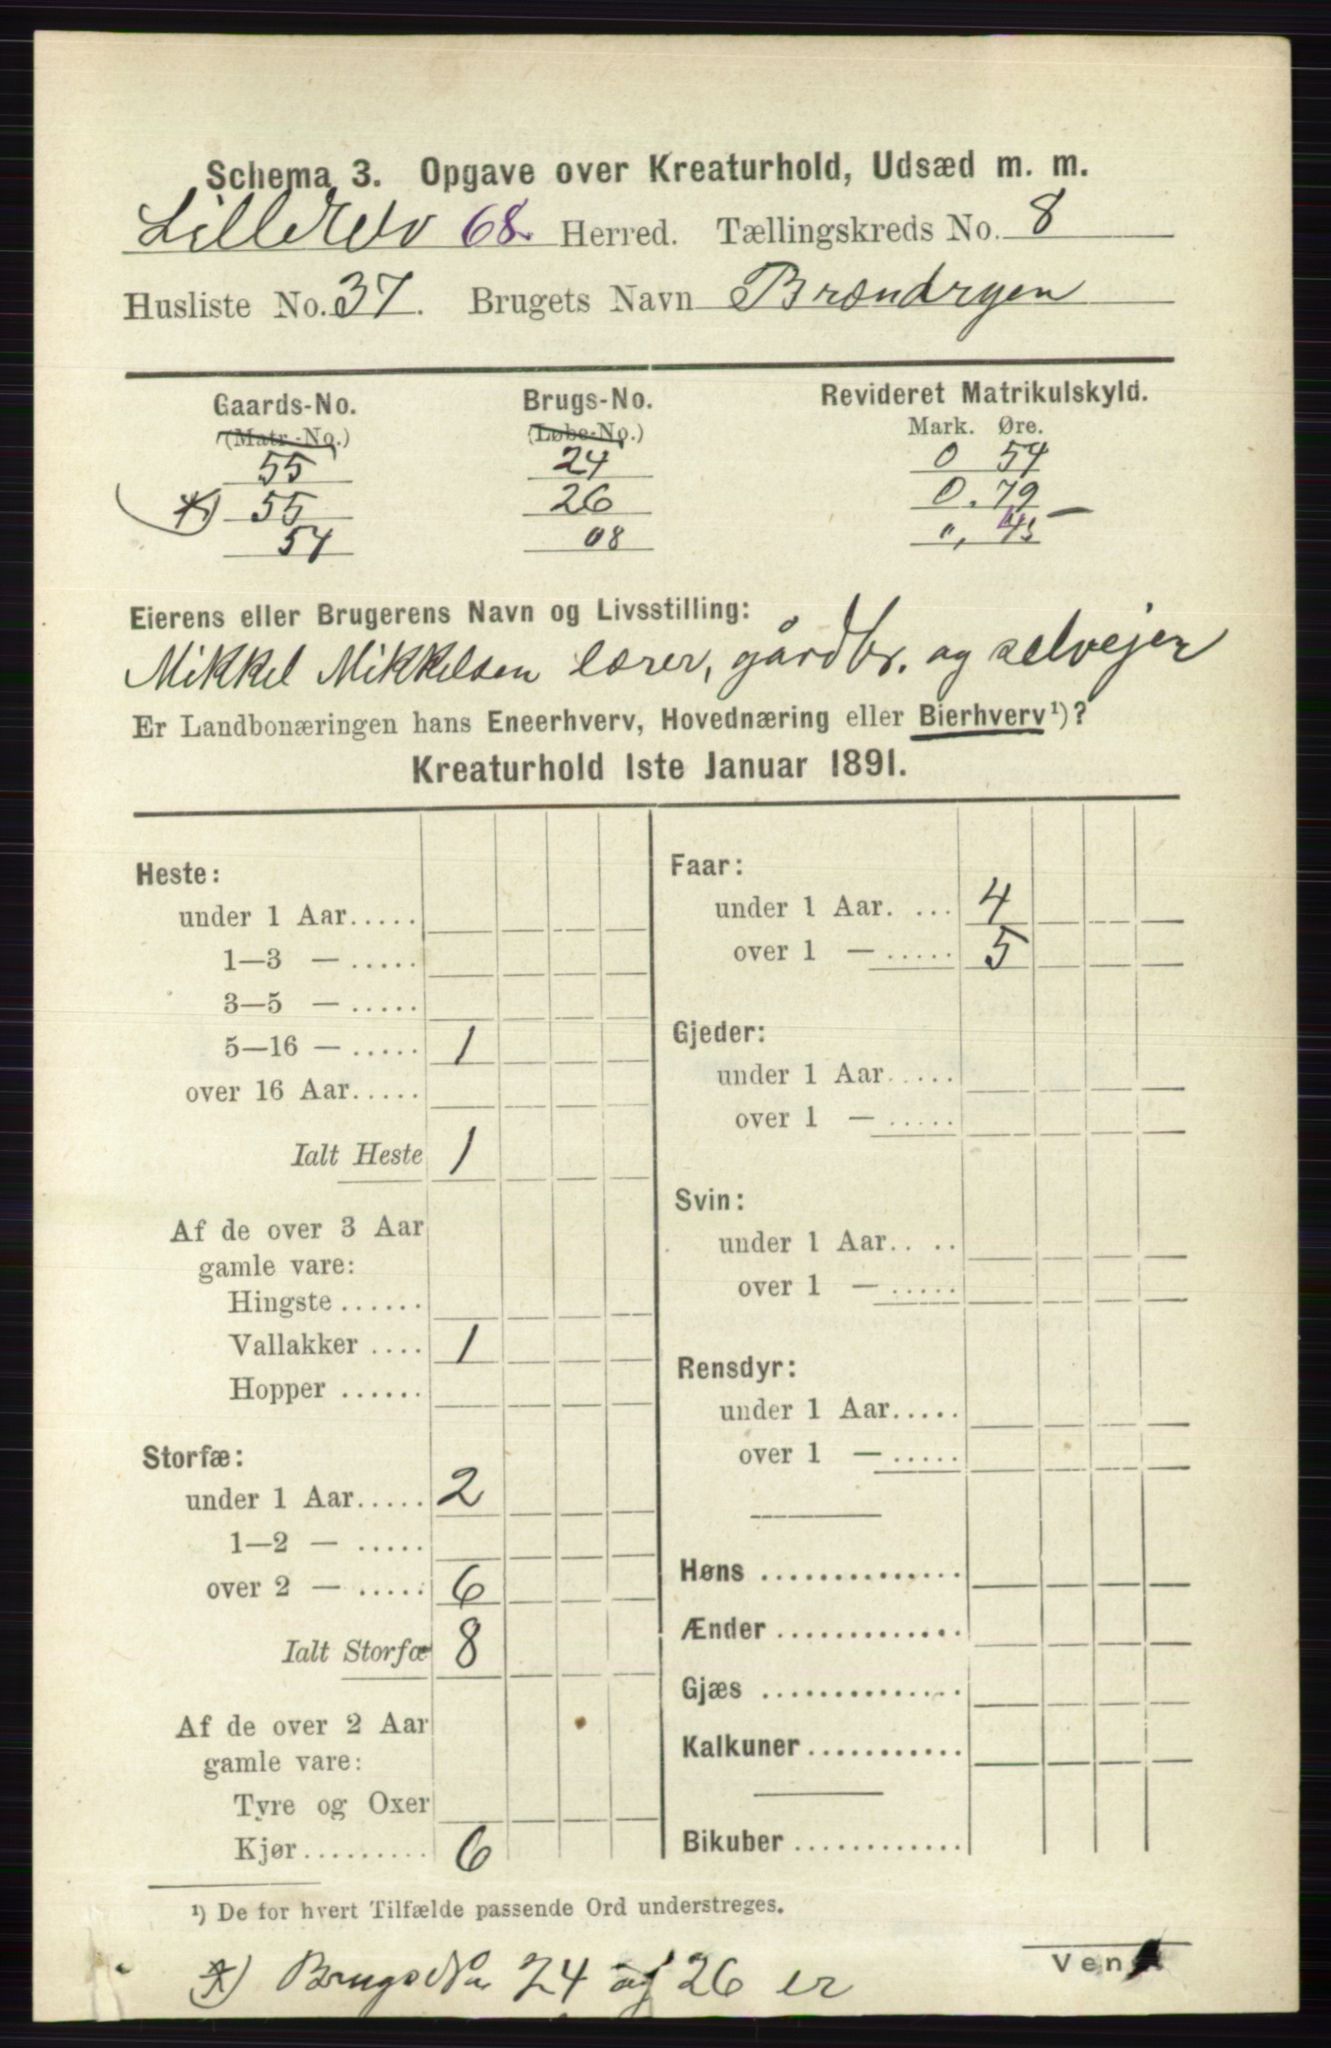 Schema 3. Opgave over Kreaturhold, Udsæd m. m.
68. Herred. Tællingskreds No. 8
Husliste No. 37. Brugets Navn Brændryen
Gaards-No. Brugs-No. Revideret Matrikulskyld.
(Matr.-No.) (Løbe-No.) Mark. Øre.
55 24 0 54
*) 55 26 0.79
54 08 „, 45
Eierens eller Brugerens Navn og Livsstilling:
Mikkel Mikkelsen lærer, gårdbr. og selvejer
Er Landbonæringen hans Eneerhverv, Hovednæring eller Bierhverv¹)?
Kreaturhold 1ste Januar 1891.
Heste:
under 1 Aar.....
1—3 — .....
3—5 — .....
5—16 — ..... 1
over 16 Aar.....
Ialt Heste 1
Af de over 3 Aar
gamle vare:
Hingste ......
Vallakker .... 1
Hopper ......
Storfæ:
under 1 Aar..... 2
1—2 — .....
over 2 — ..... 6
Ialt Storfæ 8
Af de over 2 Aar
gamle vare:
Tyre og Oxer
Kjør......... 6
Faar:
under 1 Aar. ... 4
over 1 — ..... 5
Gjeder:
under 1 Aar.....
over 1 — .....
Svin:
under 1 Aar.. ..
over 1 — .....
Rensdyr:
under 1 Aar.....
over 1 — .....
Høns ..............
Ænder .............
Gjæs ..............
Kalkuner...........
Bikuber ............
¹) De for hvert Tilfælde passende Ord understreges.
Vend
*) Brugs No. 24 og 26 er